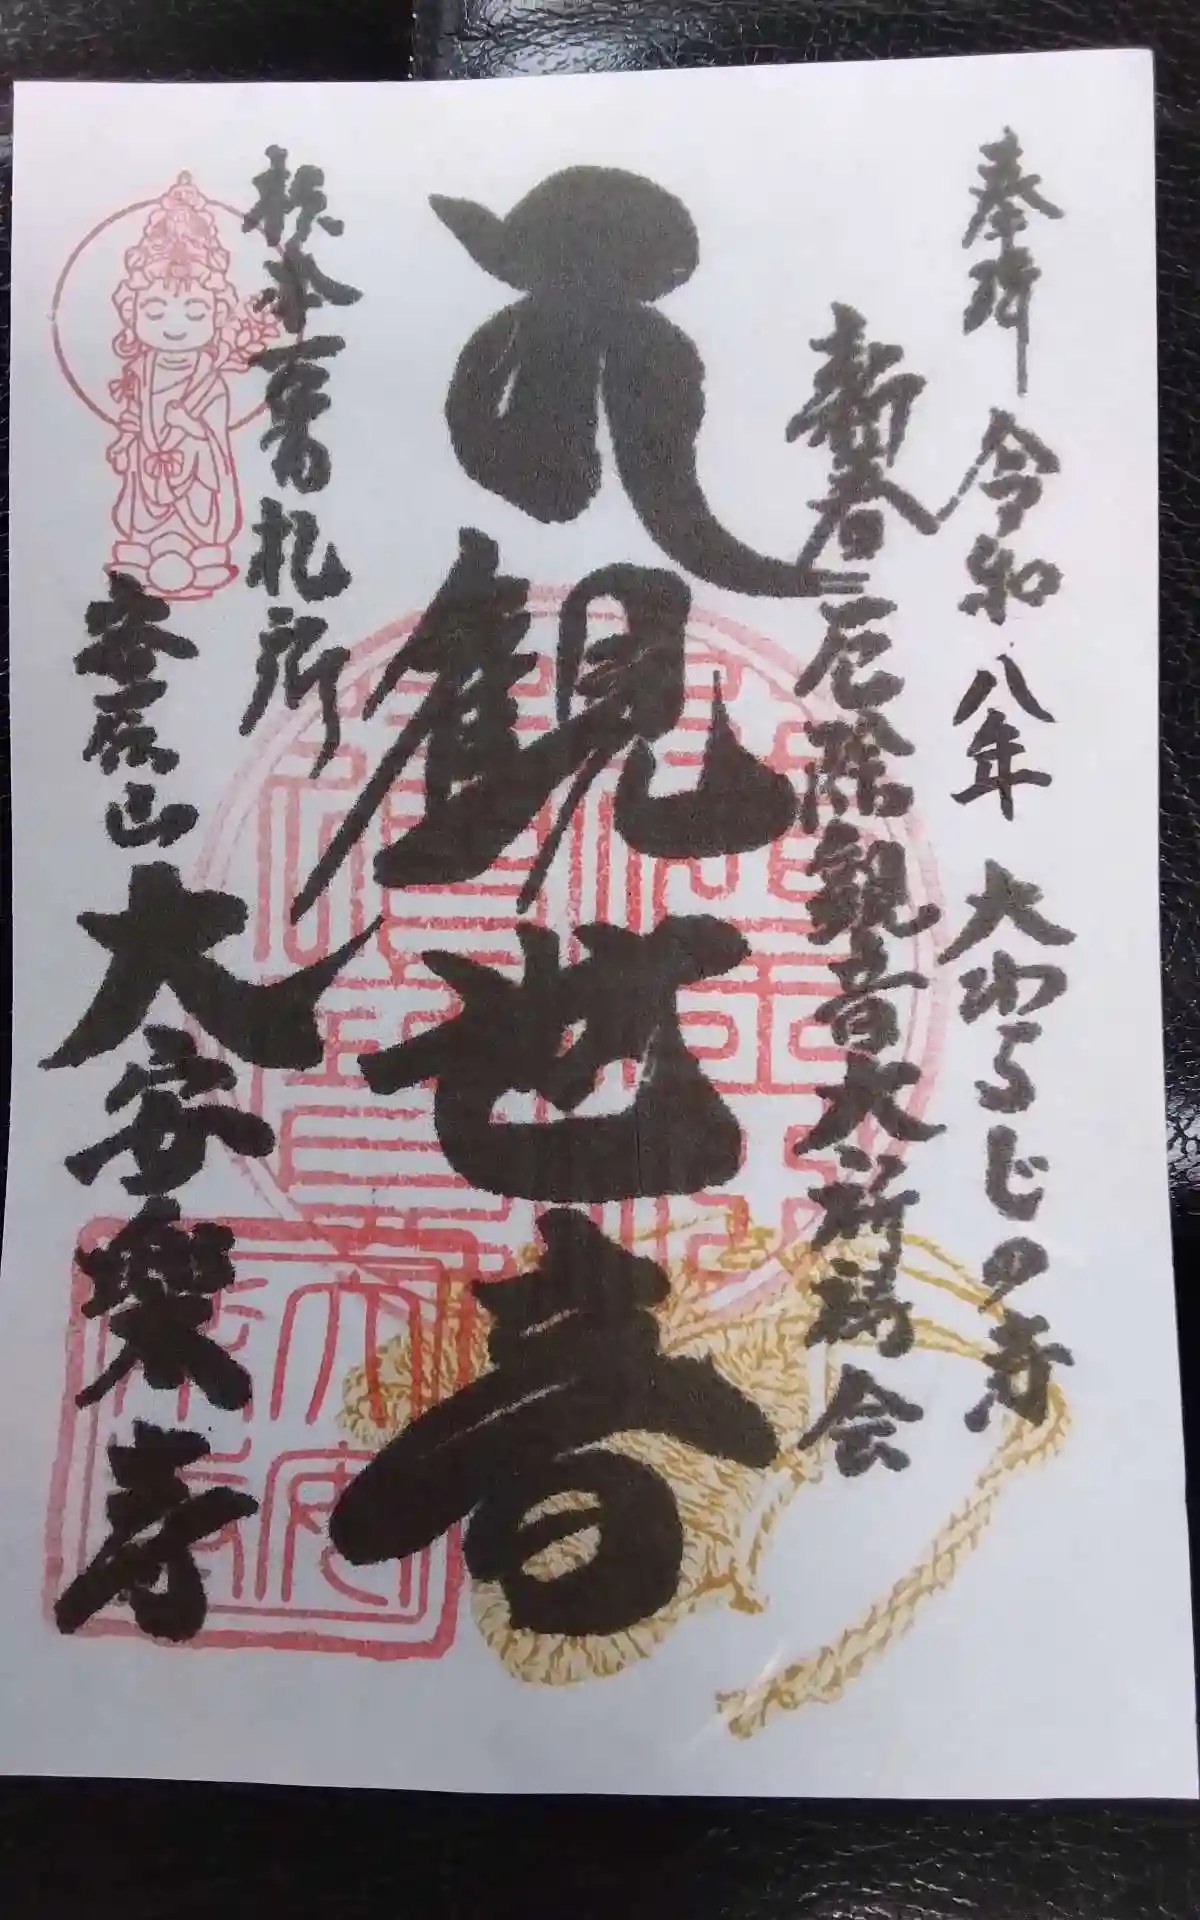 奉拝 令和八年 大わらじの寺
新春厄除観音大祈祷会
観世音
松本百番札所
安養山 大安楽寺